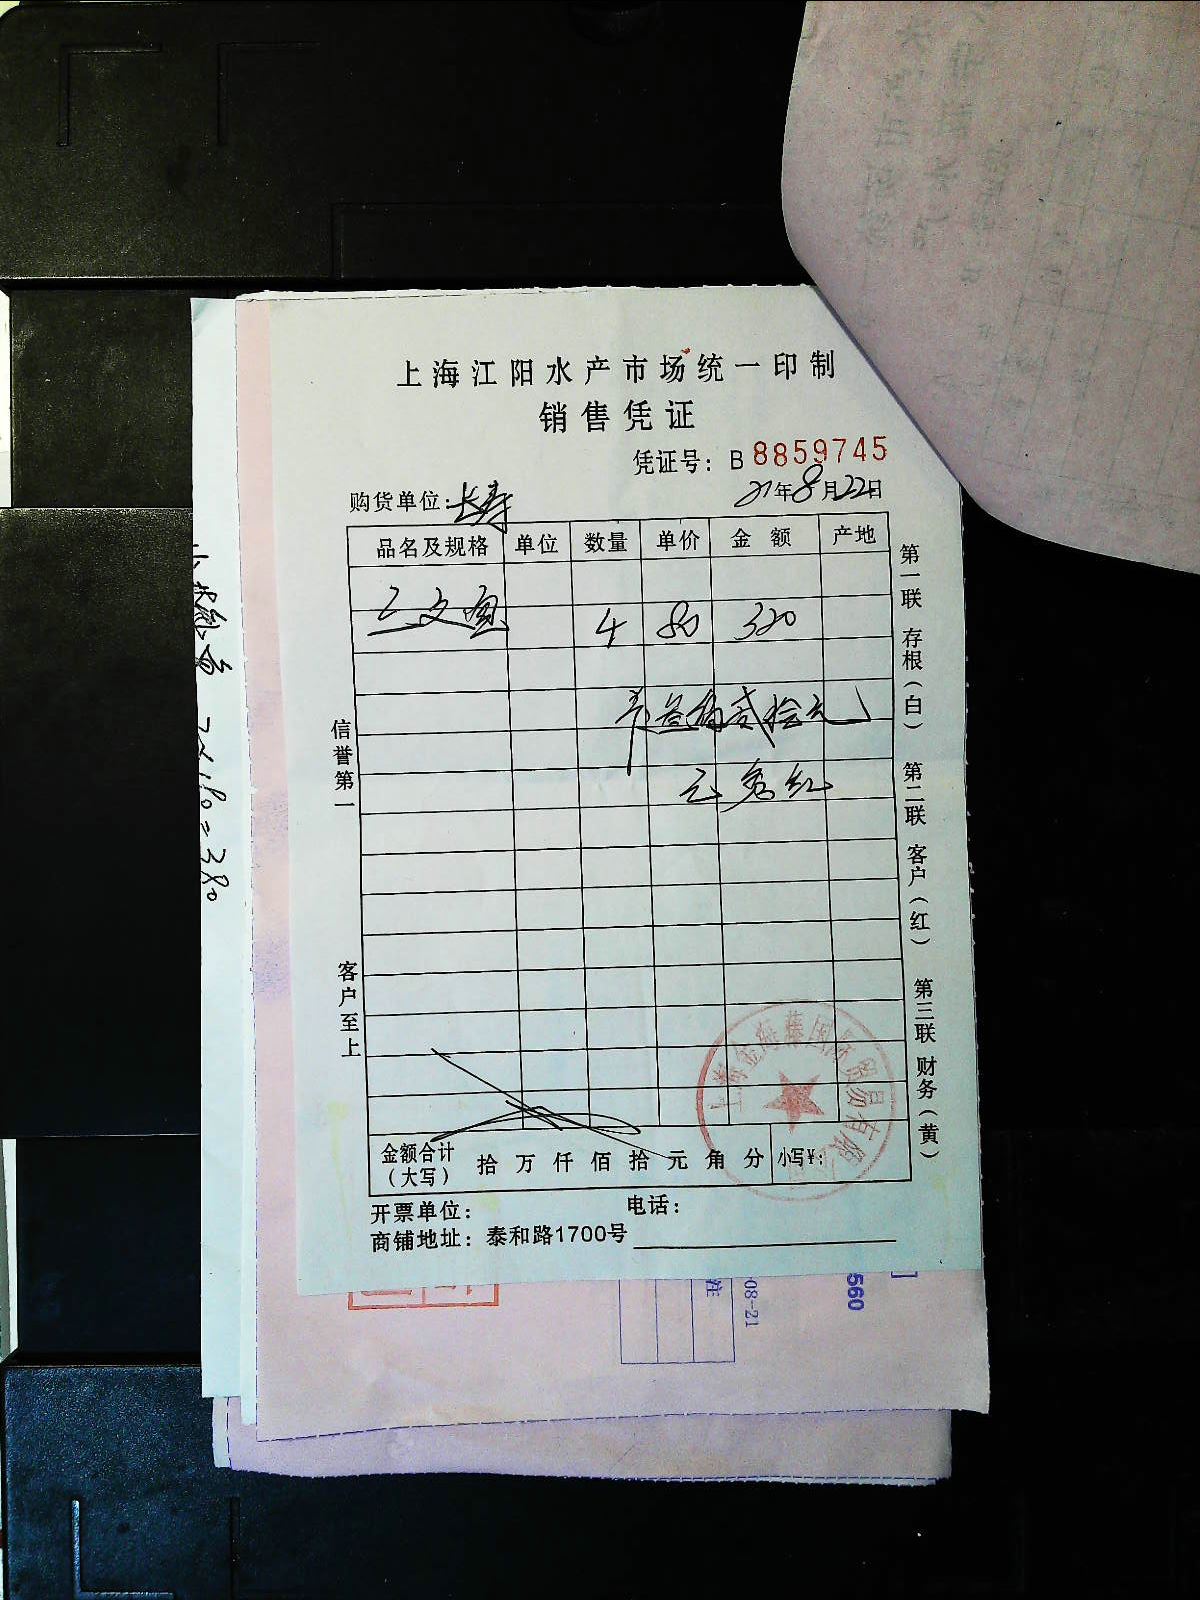 上海江阳水产市场统一印制
销售凭证
凭证号：B 8859745
购货单位：长寿
21年8月22日
品名及规格 单位 数量 单价 金额 产地
三文鱼 4 80 320
叁佰贰拾元
金额合计（大写） 拾 万 仟 佰 拾 元 角 分 小写¥：
开票单位： 电话：
商铺地址：泰和路1700号
信誉第一 客户至上
第一联 存根（白） 第二联 客户（红） 第三联 财务（黄）
=380
08-21
注
560